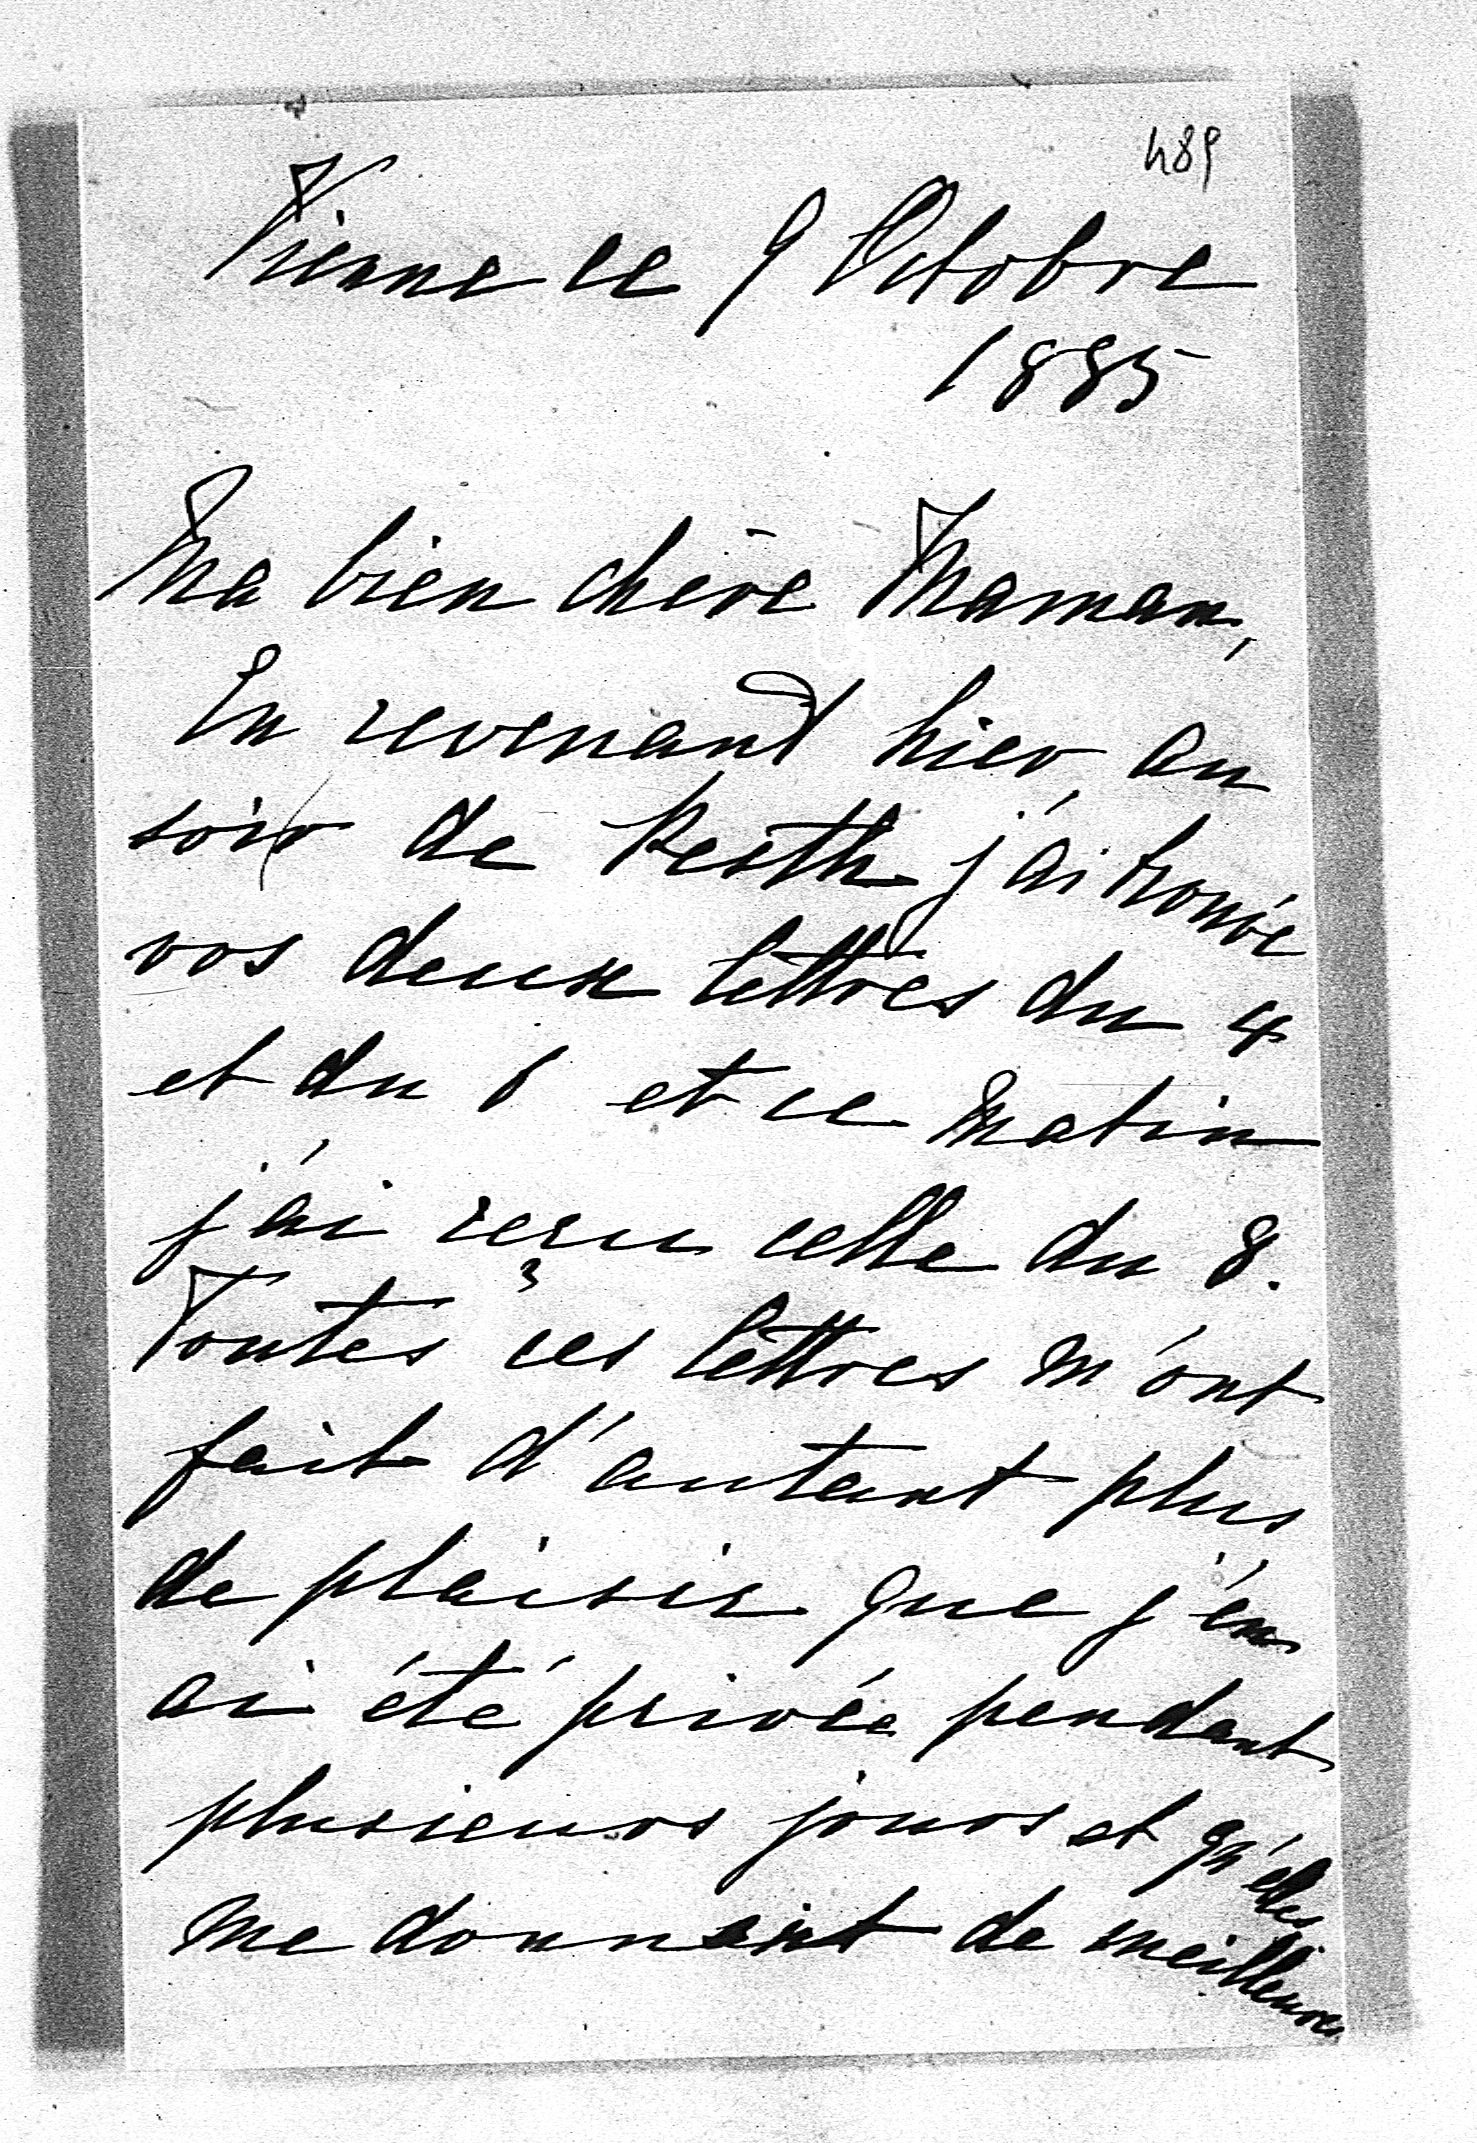 489
Vienne ce 9 Octobre
1885
Ma bien chère Maman,
En revenant hier au
soir de Pesth j'ai trouvé
vos deux lettres du 4
et du 6 et ce matin
j'ai reçu celle du 8.
Toutes ces lettres m'ont
fait d'autant plus
de plaisir que j'en
ai été privée pendant
plusieurs jours et qu'elles
me donnent de meilleures